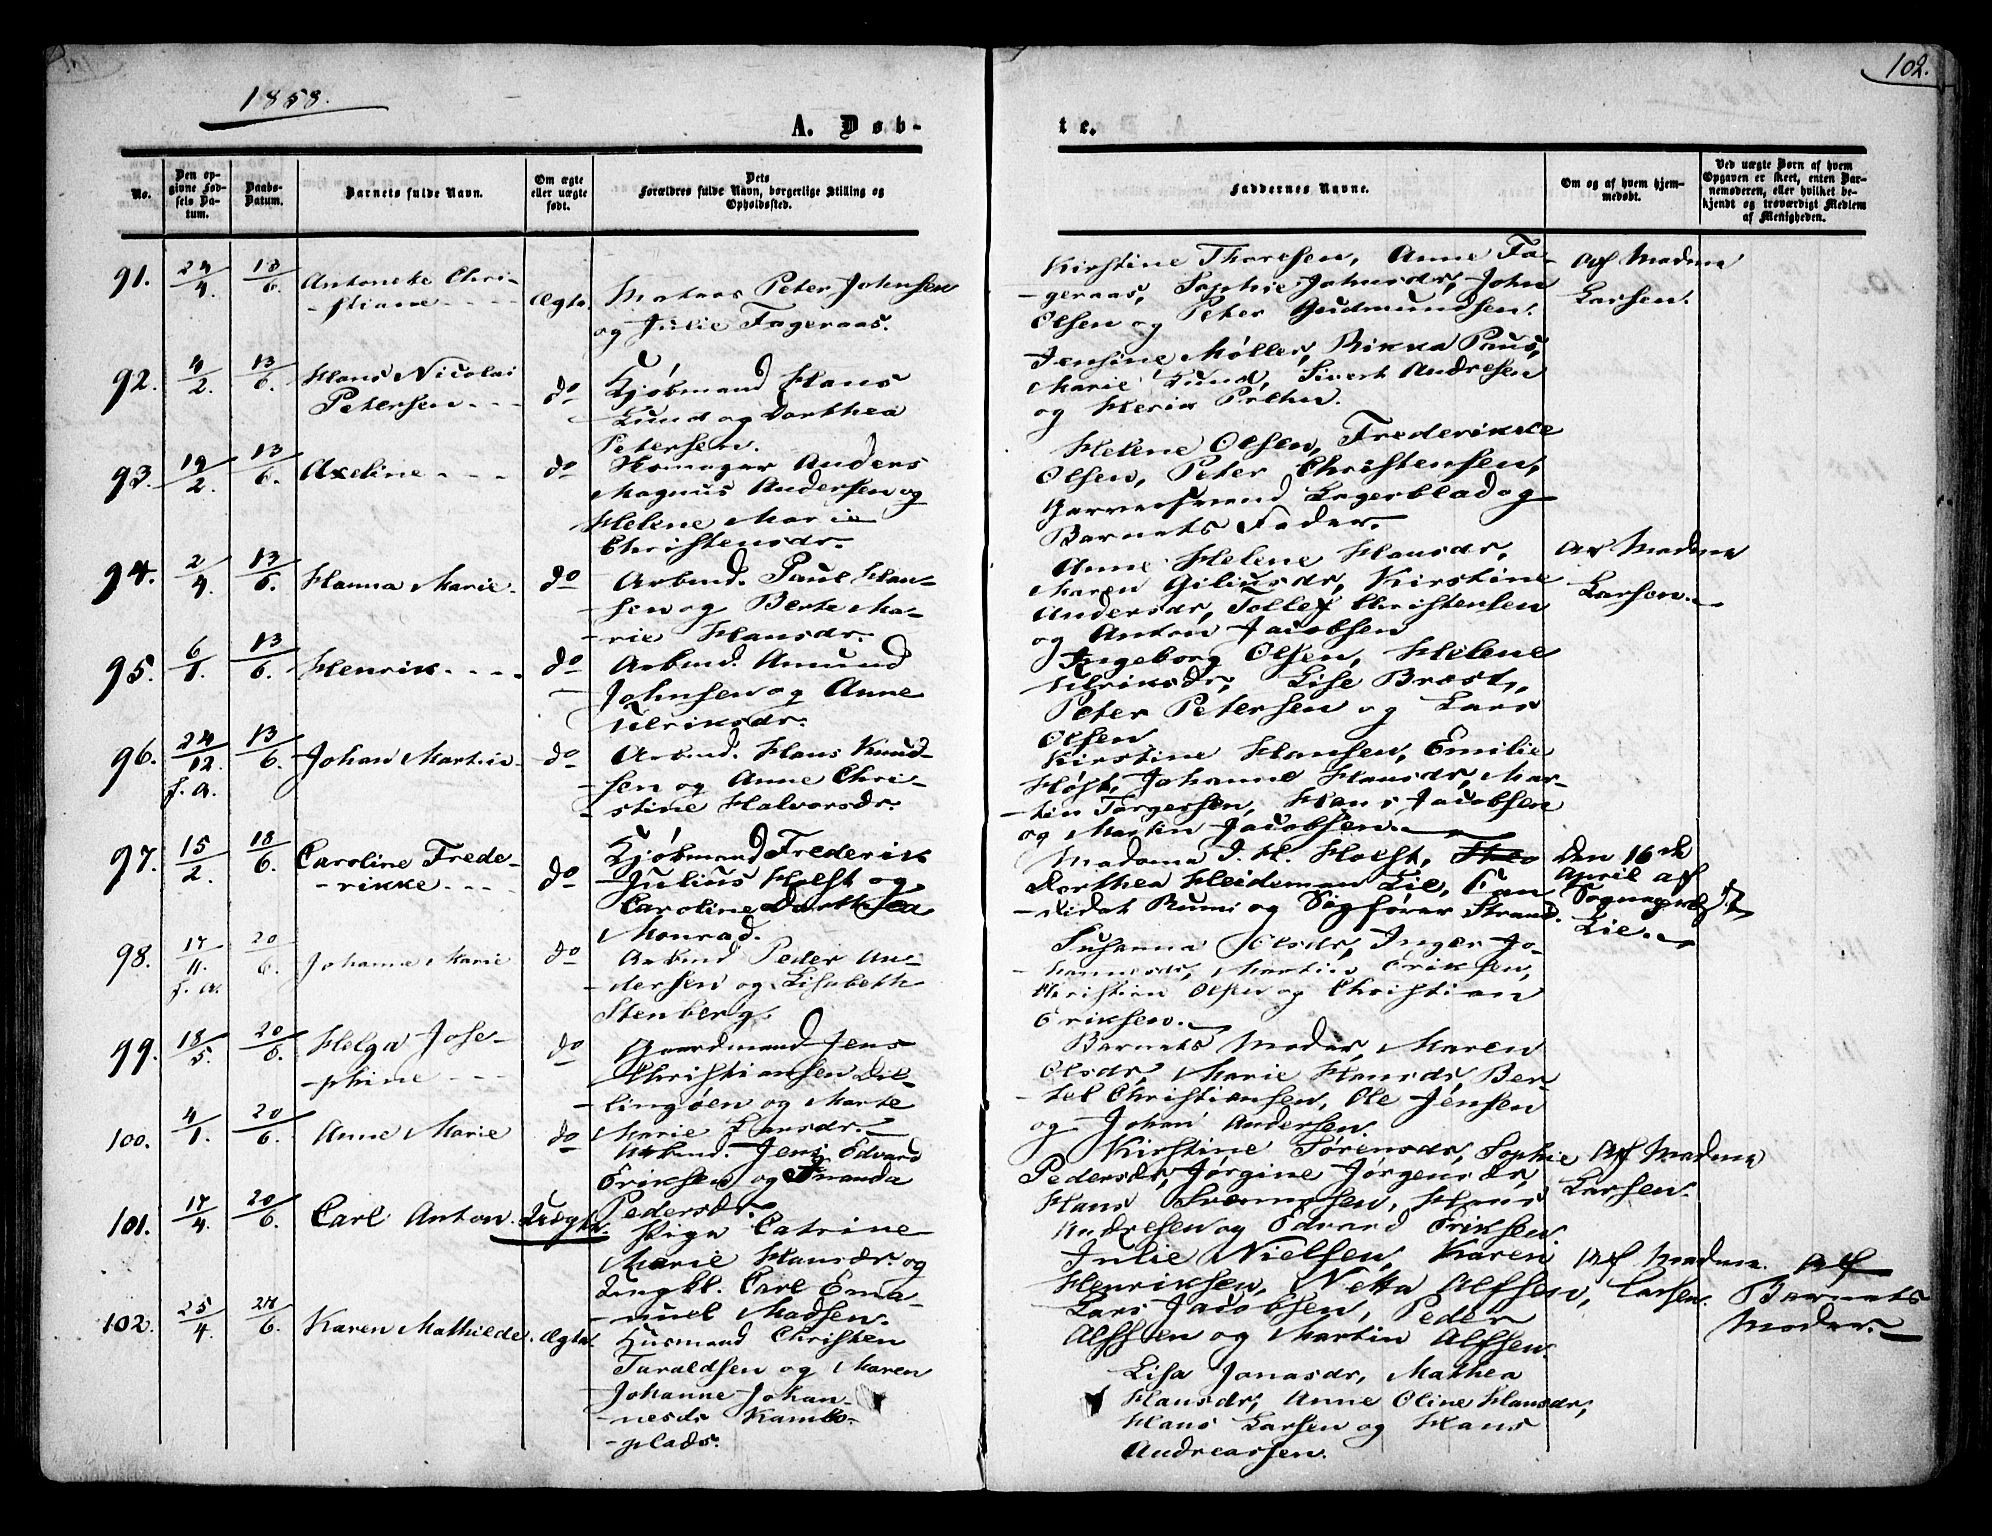 102.
1858.
A. Døb-
te.
No.
Den op-
givne Fød-
sels Da-
tum.
Daabs-
Datum.
Barnets fulde Navn.
Om ægte
eller uægte
født.
Dets
Forældres fulde Navn, borgerlige Stilling og
Opholdssted.
Faddernes Navne.
Om og af hvem hjem-
medøbt.
Ved uægte Børn af hvem
Opgaven er skeet, enten Bar-
nemoderen, eller hvilket be-
kjendt og troværdigt Medlem
af Menigheden.
91. 24/4. 13/6. Antonette Chri-
stiane - - - -
Ægte.
Matros Peter Johnsen
og Julie Fageraas.
Kirstine Thoresen, Anne Fa-
geraas, Sophie Johnsdr, John
Olsen og Peter Gudmundsen.
Af Madme
Larsen.
92. 4/2. 13/6. Hans Nicolai
Petersen - - -
do
Kjøbmand Hans
Lund og Dorthea
Petersen.
Jensine Møller, Rikka Paus,
Marie Lund, Sivert Andresen
og
93. 19/2. 13/6. Axeline - - - -
do
Skomager Anders
Magnus Andersen og
Helene Marie
Christensdr.
Helene Olsen, Frederikke
Olsen, Peter Christensen,
Garversvend Lagerblad og
Barnets Fader.
94. 2/4. 13/6. Hanna Marie.
do
Arbmd. Paul Han-
sen og Berte Ma-
rie Hansdr.
Anne Helene Hansdr,
Maren Giliusdr, Kirstine
Andersdr, Tollef Christensen
og Anton Jacobsen
Af Madme
Larsen.
95. 6/1. 13/6. Henrik - - - -
do
Arbmd. Amund
Johnsen og Anne
Ulriksdr.
Ingeborg Olsen, Helene
Ulriksdr, Lise Brost,
Peter Petersen og Lars
Olsen
96. 24/12. f. A. 13/6. Johan Martin -
do
Arbmd. Hans Knud-
sen og Anne Chri-
stine Halvorsdr.
Kirstine Hansen, Emilie
Høst, Johanne Hansdr, Mar-
tin Torgersen, Hans Jacobsen
og Martin Jacobsen.
97. 15/2. 18/6. Caroline Frede-
rikke - - - -
do
Kjøbmand Frederik
Julius Holst og
Caroline Dorthea
Monrad.
Madame J. H. Holst,
Dorthea Heideman Lie, Can-
didat Rumi og Sagfører Strand.
Den 16de
April af
Sognepræst
Lie.
98. 17/11. f. A. 20/6. Johanne Marie
do
Arbmd Peder An-
dersen og Lisabeth
Stenberg.
Susanna Olsdr, Inger Jo-
hannesdr, Martin Eriksen,
Christian Olsen og Christian
Eriksen.
99. 18/5. 20/6. Helga Jose-
phine - - -
do
Gaardmand Jens
Christiansen Dil-
lingøen og Marte
Marie Larsdr.
Barnets Moder, Maren
Olsdr, Marie Hansdr, Ber-
tel Christiansen, Ole Jensen
og Johan Andersen.
100. 4/1. 20/6. Anne Marie
do
Arbmd. Jens Edvard
Eriksen og Amanda
Pedersdr.
Kirstine Sørensdr, Sophie
Pedersdr, Jørgine Jørgensdr,
Hans Svenningsen, Hans
Andresen og Edvard Eriksen.
Af Madme
Larsen.
101. 17/4. 20/6. Carl Anton.
Uægte.
Pige Catrine
Marie Hansdr. og
Ungkl. Carl Ema-
nuel Madsen.
Julie Nielsen, Karen
Henriksen, Netta Alfsen,
Lars Jacobsen, Peder
Alfsen og Martin Alfsen.
Af Madme.
Larsen.
Af
Barnets
Moder.
102. 25/4. 24/6. Karen Mathilde.
Ægte.
Husmand Christen
Taraldsen og Maren
Johanne Johan-
nesdr Kambo-
plads.
Lisa Jonasdr, Mathea
Hansdr, Anne Oline Hansdr,
Hans Larsen og Hans
Andreassen.